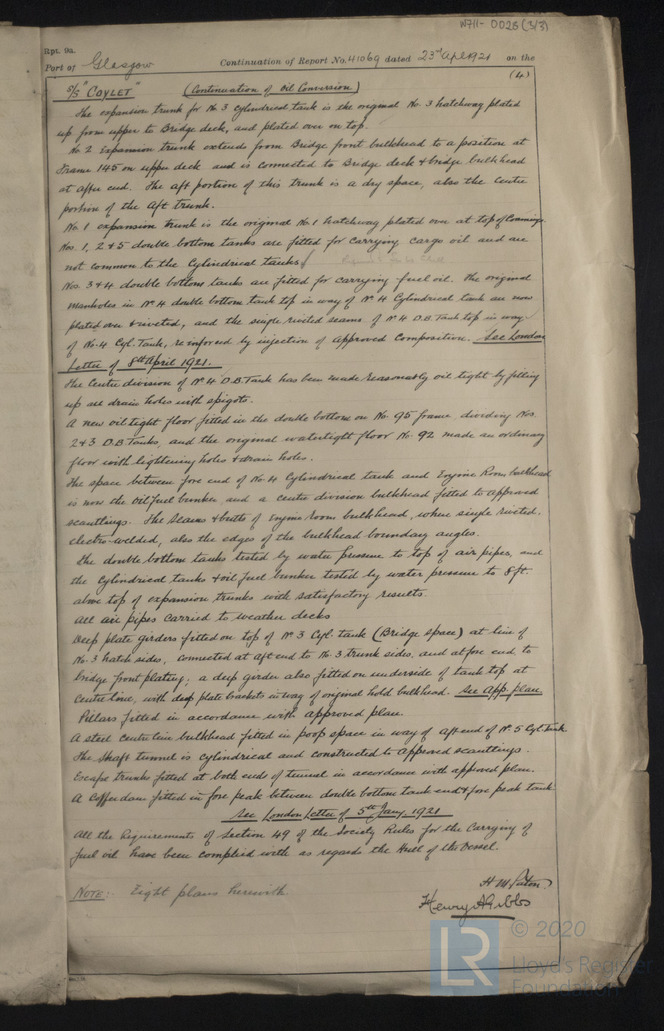 W711-0026(3/3)
Rpt. 9a.
Port of Glasgow Continuation of Report No. 41069 dated 23rd Apl 1921 on the
(4)
S/S "COYLET" (Continuation of Oil Conversion)
The expansion trunk for No 3 Cylindrical tank is the original No. 3 hatchway plated
up from upper to Bridge deck, and plated over on top.
No 2 Expansion trunk extends from Bridge front bulkhead to a position at
Frame 145 on upper deck and is connected to Bridge deck & bridge bulkhead
at after end. The aft portion of this trunk is a dry space, also the centre
portion of the aft trunk.
No. 1 expansion trunk is the original No 1 hatchway plated over at top of Coamings
Nos. 1, 2 & 5 double bottom tanks are fitted for carrying cargo oil and are
not common to the Cylindrical tanks
Nos. 3 & 4 double bottom tanks are fitted for carrying fuel oil. The original
manholes in No 4 double bottom tank top in way of No 4 Cylindrical tank are now
plated over & riveted, and the single riveted seams of No 4 D.B. Tank top in way
of No. 4 Cyl. Tank, reinforced by injection of approved composition. See London
Letter of 8th April 1921.
The Centre division of No 4 D.B. Tank has been made reasonably oil tight by filling
up all drain holes with spigots.
A new oil tight floor fitted in the double bottom on No. 95 frame dividing Nos.
2 & 3 D.B. Tanks, and the original watertight floor No. 92 made an ordinary
floor with lightening holes & drain holes.
The space between fore end of No. 4 Cylindrical tank and Engine Room bulkhead
is now the oil fuel bunker and a centre division bulkhead fitted to approved
scantlings. The seams & butts of Engine Room bulkhead, where single riveted,
electro-welded, also the edges of the bulkhead boundary angles.
The double bottom tanks tested by water pressure to top of air pipes, and
the Cylindrical tanks & oil fuel bunker tested by water pressure to 8 ft.
above top of expansion trunks with satisfactory results.
All air pipes carried to weather decks
Deep plate girders fitted on top of No 3 Cyl. tank (Bridge space) at line of
No. 3 hatch sides, connected at aft end to No. 3 trunk sides, and at fore end to
bridge front plating; a deep girder also fitted on underside of tank top at
Centre line, with deep plate brackets in way of original hold bulkhead. See App. plan.
Pillars fitted in accordance with approved plan.
A steel centre line bulkhead fitted in poop space in way of aft end of No 5 Cyl. Tank.
The Shaft tunnel is cylindrical and constructed to approved scantlings.
Escape trunks fitted at both ends of tunnel in accordance with approved plan.
A Cofferdam fitted in fore peak between double bottom tank end & fore peak tank
See London Letter of 5th Jany 1921
All the Requirements of Section 49 of the Society Rules for the Carrying of
fuel oil have been complied with as regards the Hull of the Vessel.
H M Paton
NOTE:- Eight plans herewith.
Henry A Gibbs
LR
© 2020
Lloyd's Register
Foundation